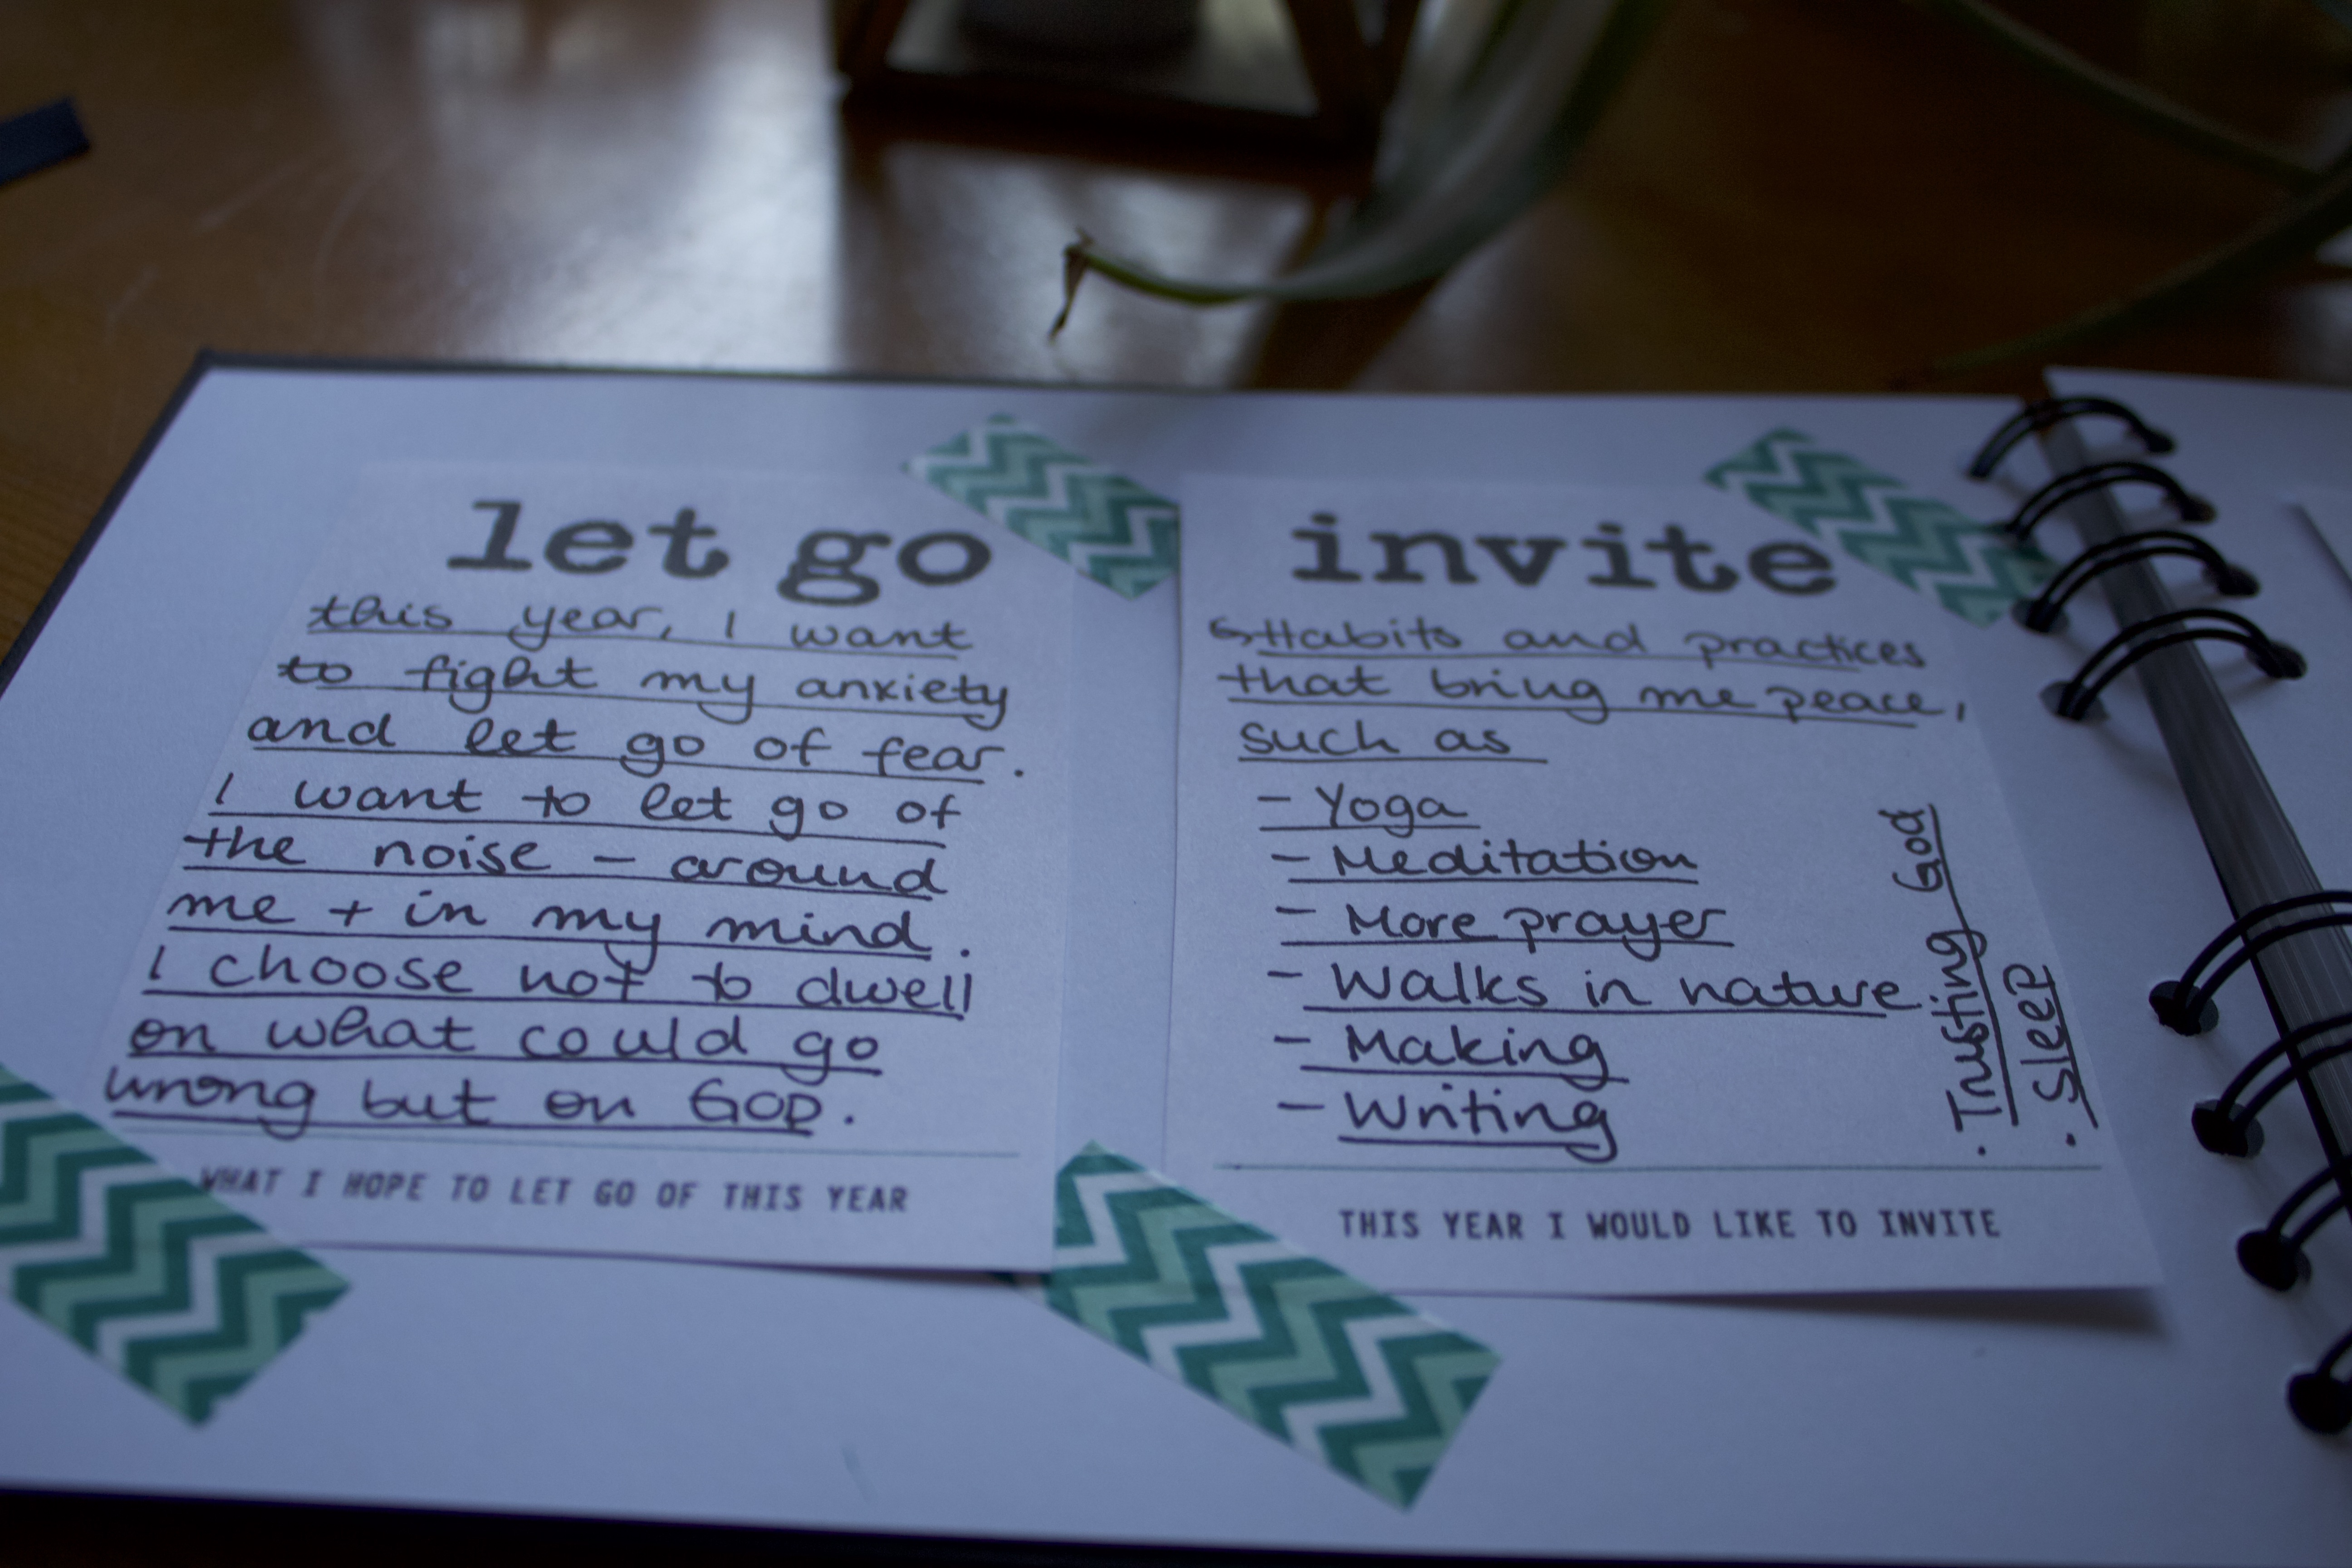 let go
this year, I want
to fight my anxiety
and let go of fear.
I want to let go of
the noise – around
me + in my mind.
I choose not to dwell
on what could go
wrong but on GOD.
WHAT I HOPE TO LET GO OF THIS YEAR
invite
Habits and practices
that bring me peace,
such as
- Yoga
- Meditation
- More prayer
- Walks in nature
- Making
- Writing
· Trusting God
· Sleep
THIS YEAR I WOULD LIKE TO INVITE